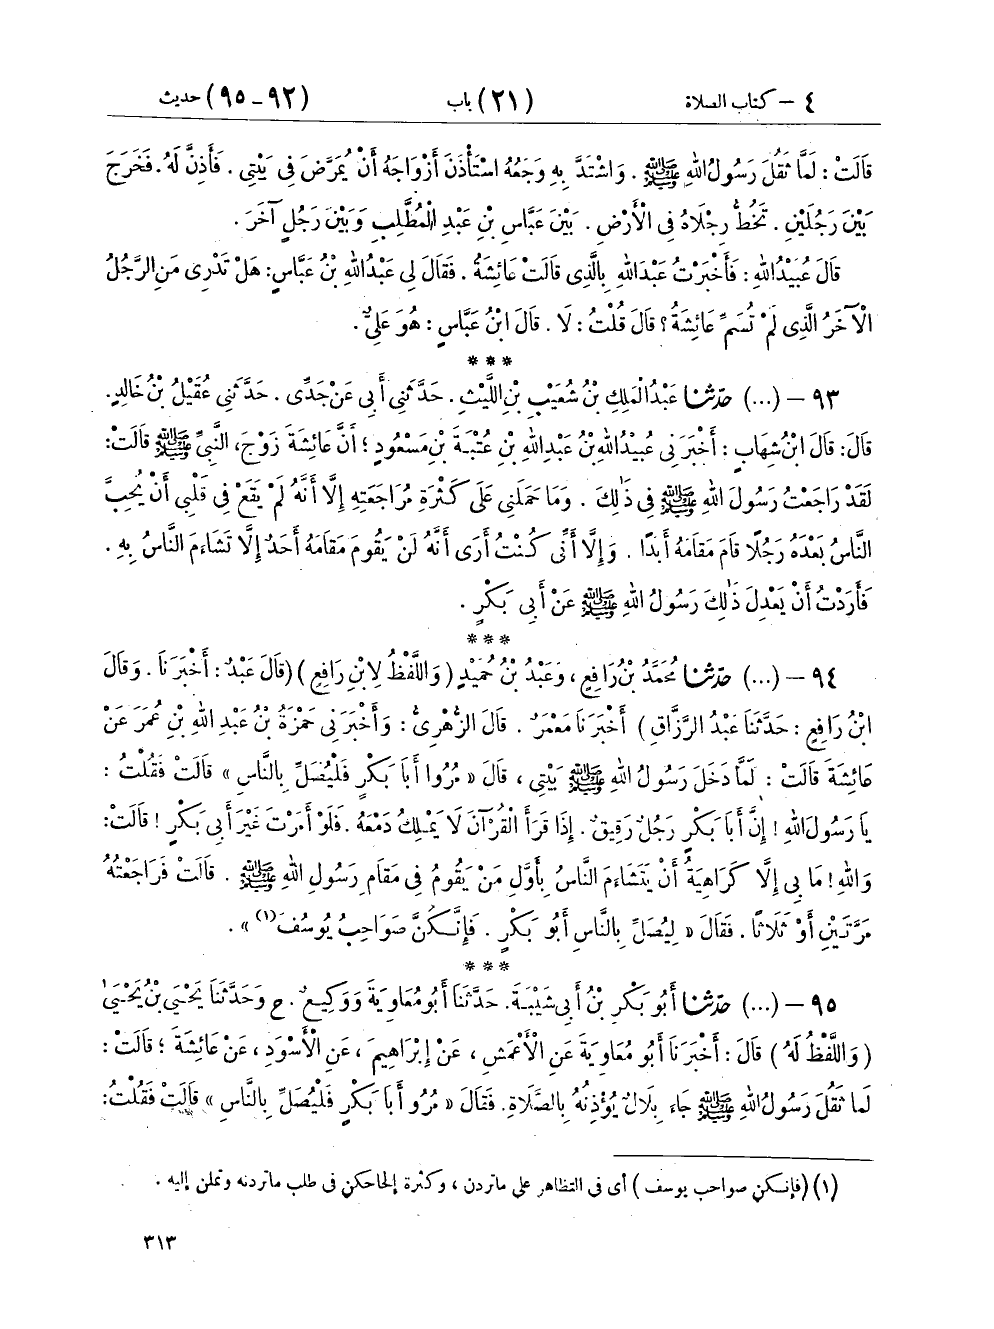 ٤ – كتاب الصلاة (٢١) باب (٩٢ – ٩٥) حديث
قَالَتْ : لَمَّا ثَقُلَ رَسُولُ اللهِ ﷺ . وَاشْتَدَّ بِهِ وَجَعُهُ اسْتَأْذَنَ أَزْوَاجَهُ أَنْ يُمَرَّضَ فِى بَيْتِى . فَأَذِنَّ لَهُ . فَخَرَجَ
بَيْنَ رَجُلَيْنِ . تَخُطُّ رِجْلَاهُ فِى الْأَرْضِ . بَيْنَ عَبَّاسِ بْنِ عَبْدِ الْمُطَّلِبِ وَبَيْنَ رَجُلٍ آخَرَ .
قَالَ عُبَيْدُ اللهِ : فَأَخْبَرْتُ عَبْدَ اللهِ بِالَّذِى قَالَتْ عَائِشَةُ . فَقَالَ لِى عَبْدُ اللهِ بْنُ عَبَّاسٍ : هَلْ تَدْرِى مَنِ الرَّجُلُ
الْآخَرُ الَّذِى لَمْ تُسَمِّ عَائِشَةُ ؟ قَالَ قُلْتُ : لَا . قَالَ ابْنُ عَبَّاسٍ : هُوَ عَلِىٌّ .
* * *
٩٣ – (...) حَدَّثَنَا عَبْدُ الْمَلِكِ بْنُ شُعَيْبِ بْنِ اللَّيْثِ . حَدَّثَنِى أَبِى عَنْ جَدِّى . حَدَّثَنِى عُقَيْلُ بْنُ خَالِدٍ .
قَالَ : قَالَ ابْنُ شِهَابٍ : أَخْبَرَنِى عُبَيْدُ اللهِ بْنُ عَبْدِ اللهِ بْنِ عُتْبَةَ بْنِ مَسْعُودٍ ؛ أَنَّ عَائِشَةَ زَوْجَ ، النَّبِىِّ ﷺ قَالَتْ :
لَقَدْ رَاجَعْتُ رَسُولَ اللهِ ﷺ فِى ذَٰلِكَ . وَمَا حَمَلَنِى عَلَى كَثْرَةِ مُرَاجَعَتِهِ إِلَّا أَنَّهُ لَمْ يَقَعْ فِى قَلْبِى أَنْ يُحِبَّ
النَّاسُ بَعْدَهُ رَجُلًا قَامَ مَقَامَهُ أَبَدًا . وَإِلَّا أَنِّى كُنْتُ أَرَى أَنَّهُ لَنْ يَقُومَ مَقَامَهُ أَحَدٌ إِلَّا تَشَاءَمَ النَّاسُ بِهِ .
فَأَرَدْتُ أَنْ يَعْدِلَ ذَٰلِكَ رَسُولُ اللهِ ﷺ عَنْ أَبِى بَكْرٍ .
* * *
٩٤ – (...) حَدَّثَنَا مُحَمَّدُ بْنُ رَافِعٍ ، وَعَبْدُ بْنُ حُمَيْدٍ ( وَاللَّفْظُ لِابْنِ رَافِعٍ ) (قَالَ عَبْدٌ : أَخْبَرَنَا . وَقَالَ
ابْنُ رَافِعٍ : حَدَّثَنَا عَبْدُ الرَّزَّاقِ ) أَخْبَرَنَا مَعْمَرٌ . قَالَ الزُّهْرِىُّ : وَأَخْبَرَنِى حَمْزَةُ بْنُ عَبْدِ اللهِ بْنِ عُمَرَ عَنْ
عَائِشَةَ قَالَتْ : لَمَّا دَخَلَ رَسُولُ اللهِ ﷺ بَيْتِى ، قَالَ « مُرُوا أَبَا بَكْرٍ فَلْيُصَلِّ بِالنَّاسِ » قَالَتْ فَقُلْتُ :
يَا رَسُولَ اللهِ ! إِنَّ أَبَا بَكْرٍ رَجُلٌ رَقِيقٌ . إِذَا قَرَأَ الْقُرْآنَ لَا يَمْلِكُ دَمْعَهُ . فَلَوْ أَمَرْتَ غَيْرَ أَبِى بَكْرٍ ! قَالَتْ :
وَاللهِ ! مَا بِى إِلَّا كَرَاهِيَةُ أَنْ يَتَشَاءَمَ النَّاسُ بِأَوَّلِ مَنْ يَقُومُ فِى مَقَامِ رَسُولِ اللهِ ﷺ . قَالَتْ فَرَاجَعْتُهُ
مَرَّتَيْنِ أَوْ ثَلَاثًا . فَقَالَ « لِيُصَلِّ بِالنَّاسِ أَبُو بَكْرٍ . فَإِنَّكُنَّ صَوَاحِبُ يُوسُفَ (١) » .
* * *
٩٥ – (...) حَدَّثَنَا أَبُو بَكْرِ بْنُ أَبِى شَيْبَةَ . حَدَّثَنَا أَبُو مُعَاوِيَةَ وَوَكِيعٌ . ح وَحَدَّثَنَا يَحْيَى بْنُ يَحْيَىٰ
( وَاللَّفْظُ لَهُ ) قَالَ : أَخْبَرَنَا أَبُو مُعَاوِيَةَ عَنِ الْأَعْمَشِ ، عَنْ إِبْرَاهِيمَ ، عَنِ الْأَسْوَدِ ، عَنْ عَائِشَةَ ؛ قَالَتْ :
لَمَا ثَقُلَ رَسُولُ اللهِ ﷺ جَاءَ بِلَالٌ يُؤْذِنُهُ بِالصَّلَاةِ . فَقَالَ « مُرُو أَبَا بَكْرٍ فَلْيُصَلِّ بِالنَّاسِ » قَالَتْ فَقُلْتُ :
(١) (فإنكن صواحب يوسف ) أى فى التظاهر على ما تردن ، وكثرة إلحاحكن فى طلب ما تردنه وتملن إليه .
٣١٣